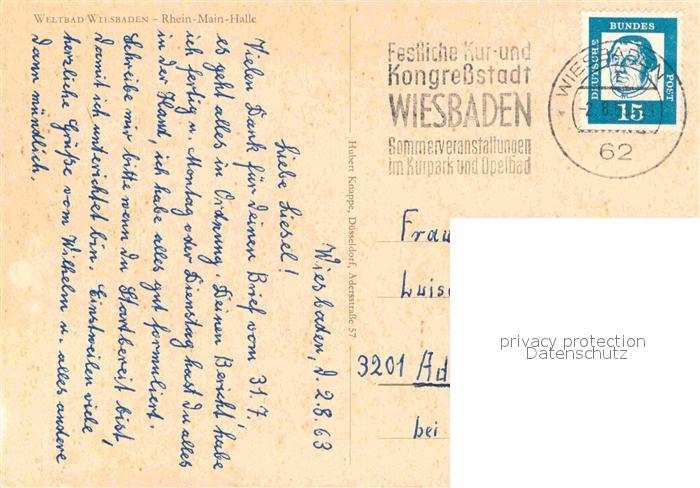 WELTBAD WIESBADEN – Rhein-Main-Halle
Wiesbaden, d. 2.8.63
Liebe Liesel!
Vielen Dank für deinen Brief vom 31.7.
es geht alles in Ordnung. Deinen Bericht habe
ich fertig u. Montag oder Dienstag hast du alles
in der Hand, ich habe alles gut formuliert.
Schreibe mir bitte wenn du Startbereit bist,
damit ich unterrichtet bin. Einstweilen viele
herzliche Grüße vom Wilhelm u. alles andere
dann mündlich.
Hubert Knappe, Düsseldorf, Adersstraße 57
Festliche Kur-und
Kongreßstadt
WIESBADEN
Sommerveranstaltungen
im Kurpark und Opelbad
WIESBADEN
62
DEUTSCHE
BUNDES
POST
15
Frau
Luise
3201 Ad
bei
privacy protection
Datenschutz